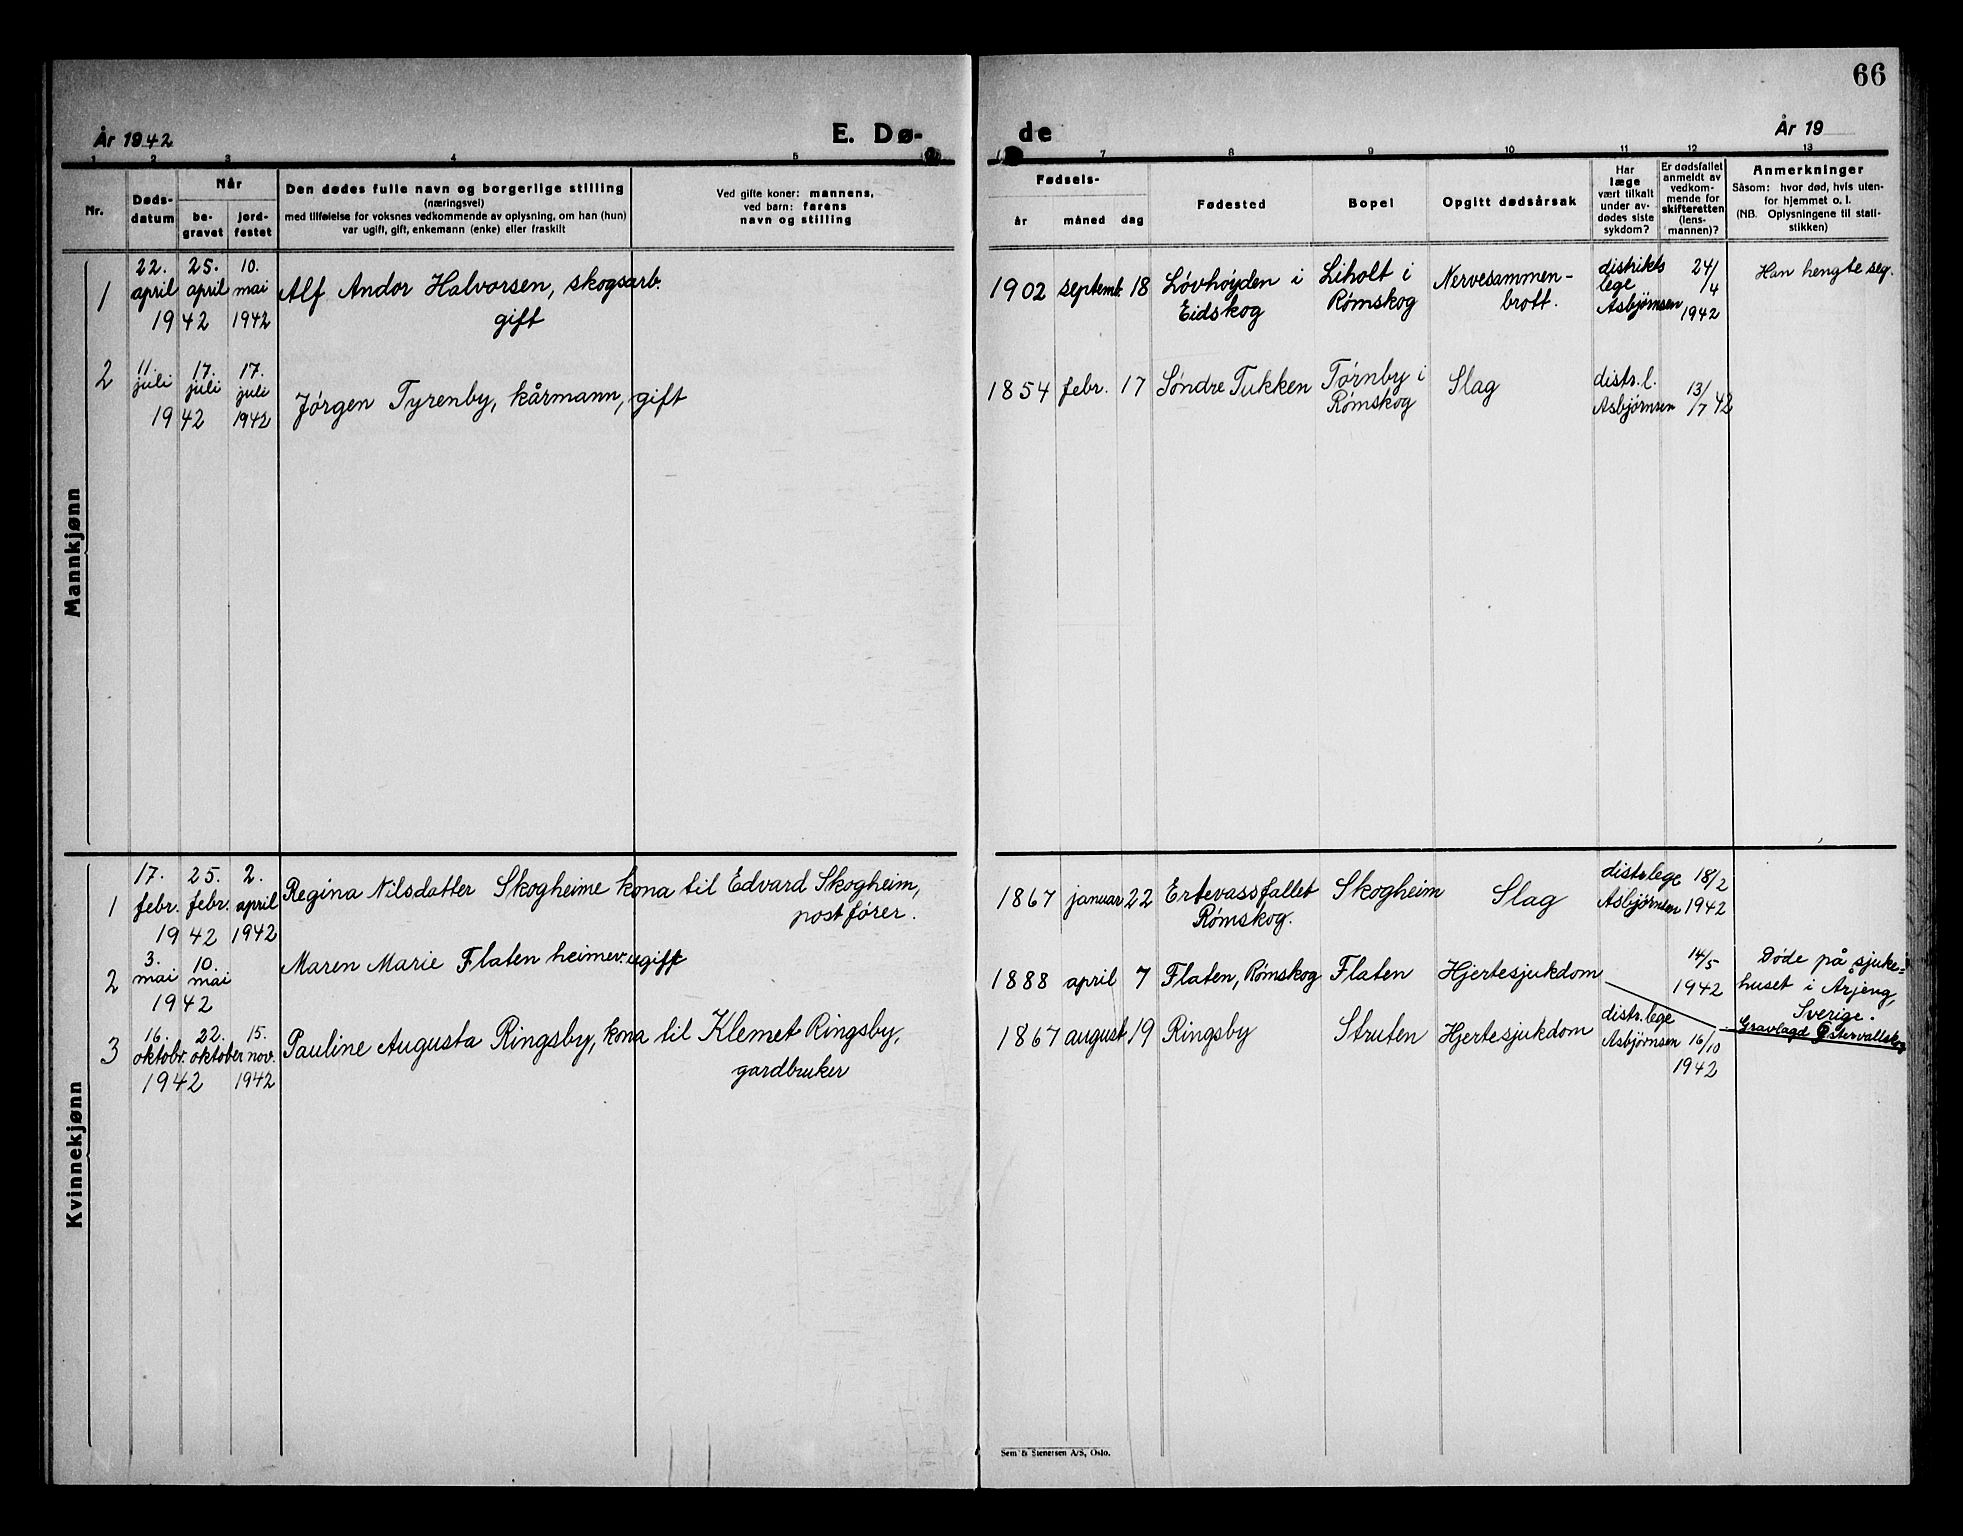 66
År 1942
E. Dø-
de
År 19
1 2 3 4 5 6
7 8 9 10 11 12 13
Nr.
Døds-
datum
Når
be-
gravet
jord-
festet
Den dødes fulle navn og borgerlige stilling
(næringsvei)
med tilføielse for voksnes vedkommende av oplysning, om han (hun)
var ugift, gift, enkemann (enke) eller fraskilt
Ved gifte koner: mannens,
ved barn: farens
navn og stilling
Fødsels-
år måned dag
Fødested
Bopel
Opgitt dødsårsak
Har
læge
vært tilkalt
under av-
dødes siste
sykdom?
Er dødsfallet
anmeldt av
vedkom-
mende for
skifteretten
(lens-
mannen)?
Anmerkninger
Såsom: hvor død, hvis uten-
for hjemmet o. l.
(NB. Oplysningene til stati-
stikken)
Mannkjønn
1
22.
april
25.
april
1942
10.
mai
1942
Alf Andor Halvorsen, skogsarb.
gift
1902 septemb. 18
Løvhøyden i
Eidskog
Liholt i
Rømskog
Nervesammen-
brott.
distrikts
lege
Asbjørnsen
24/
/4
1942
Han hengte seg.
2
11.
juli
17.
juli
1942
17.
juli
1942
Jørgen Tyrenby, kårmann, gift
1854 febr. 17
Søndre Tukken
Tørnby i
Rømskog
Slag
distr.l.
Asbjørnsen
13/
/7 42
Kvinnekjønn
1
17.
febr.
25.
febr.
1942
2.
april
1942
Regina Nilsdatter Skogheime kona til Edvard Skogheim,
postfører.
1867 januar 22
Ertevassfallet
Rømskog.
Skogheim
Slag
distr.lege
Asbjørnsen
18/2
1942
2
3.
mai
10.
mai
1942
Maren Marie Flaten heimev. ugift
1888 april 7
Flaten, Rømskog
Flaten
Hjertesjukdom
14/5
1942
Døde på sjuke=
huset i Arjeng,
Sverige.
Gravlagd Østervallskog
3
16.
oktobr.
22.
oktober
1942
15.
nov.
1942
Pauline Augusta Ringsby, kona til Klemet Ringsby,
gardbruker
1867 august 19
Ringsby
Struten
Hjertesjukdom
distr.lege
Asbjørnsen
16/10
1942
Sem & Stenersen A/S, Oslo.